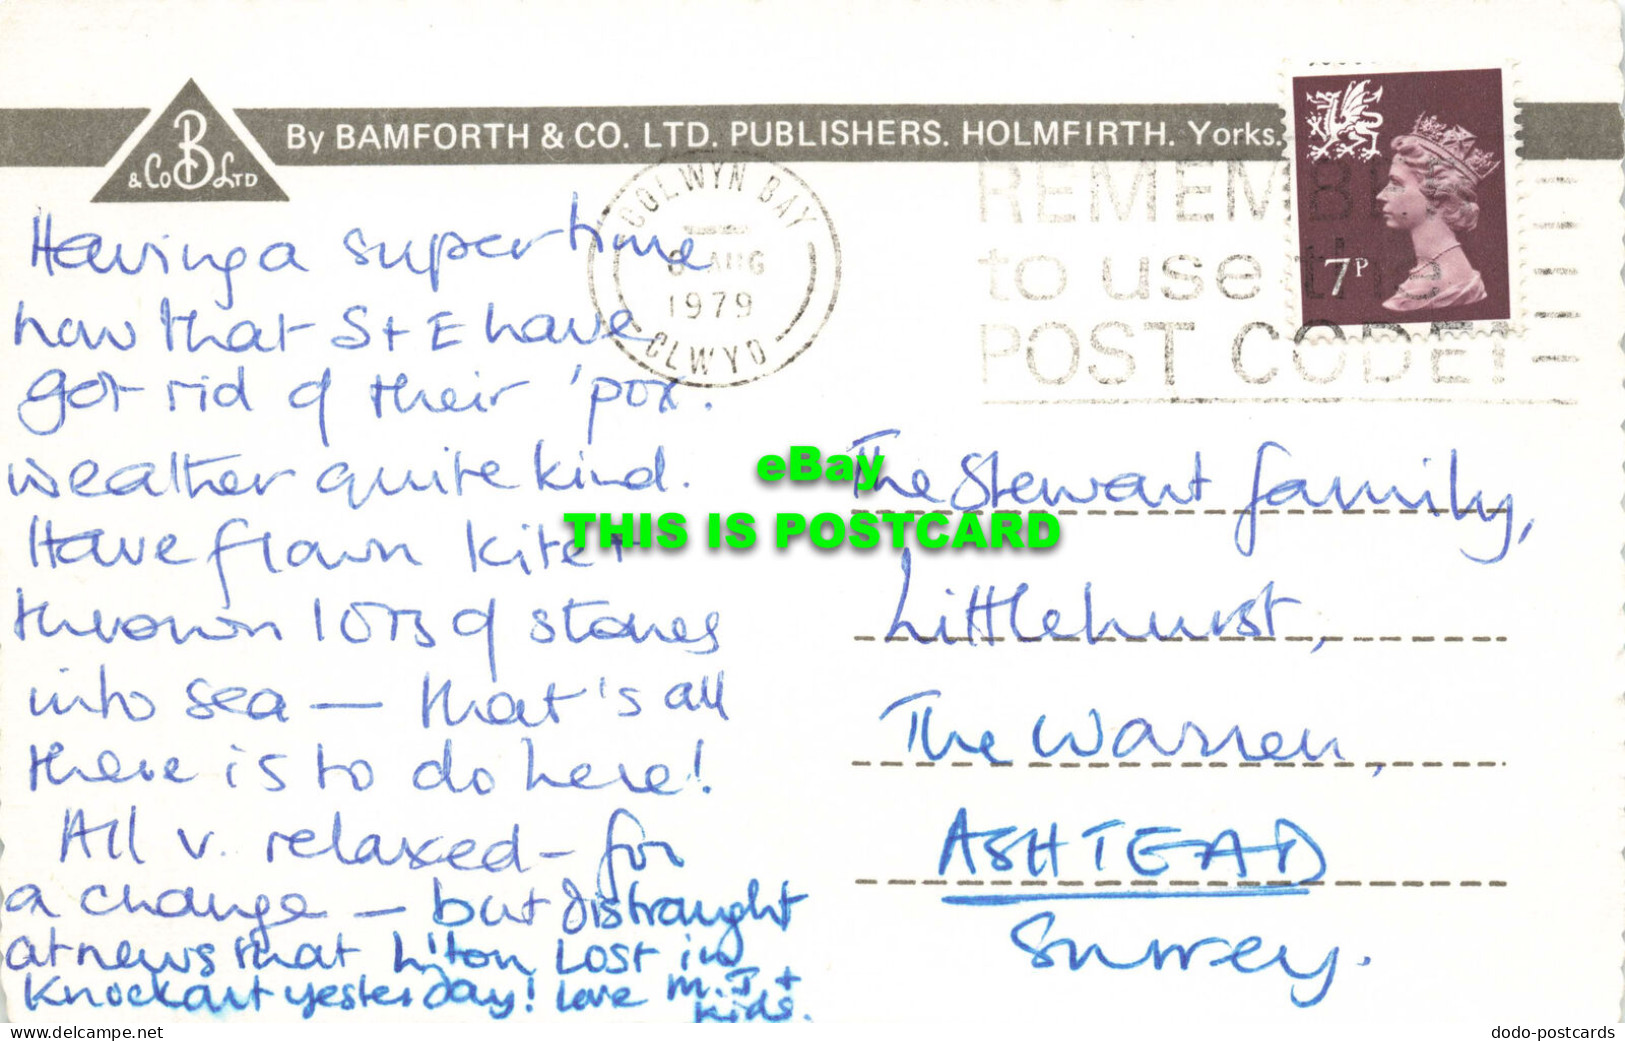 By BAMFORTH & CO. LTD. PUBLISHERS. HOLMFIRTH. Yorks.
B
& Co LTD
COLWYN BAY
AUG
1979
CLWYD
REMEMBER
to use the
POST CODE!
7P
Having a super time
now that S + E have
got rid of their 'pox.
Weather quite kind.
Have flown kite +
thrown lots of stones
into sea — that's all
there is to do here!
All v. relaxed – for
a change — but distraught
at news that L'ton LOST in
Knockout yesterday! Love M. J +
kids.
The Stewart family,
Littlehurst,
The Warren,
ASHTEAD
Surrey.
eBay
THIS IS POSTCARD
www.delcampe.net
dodo-postcards